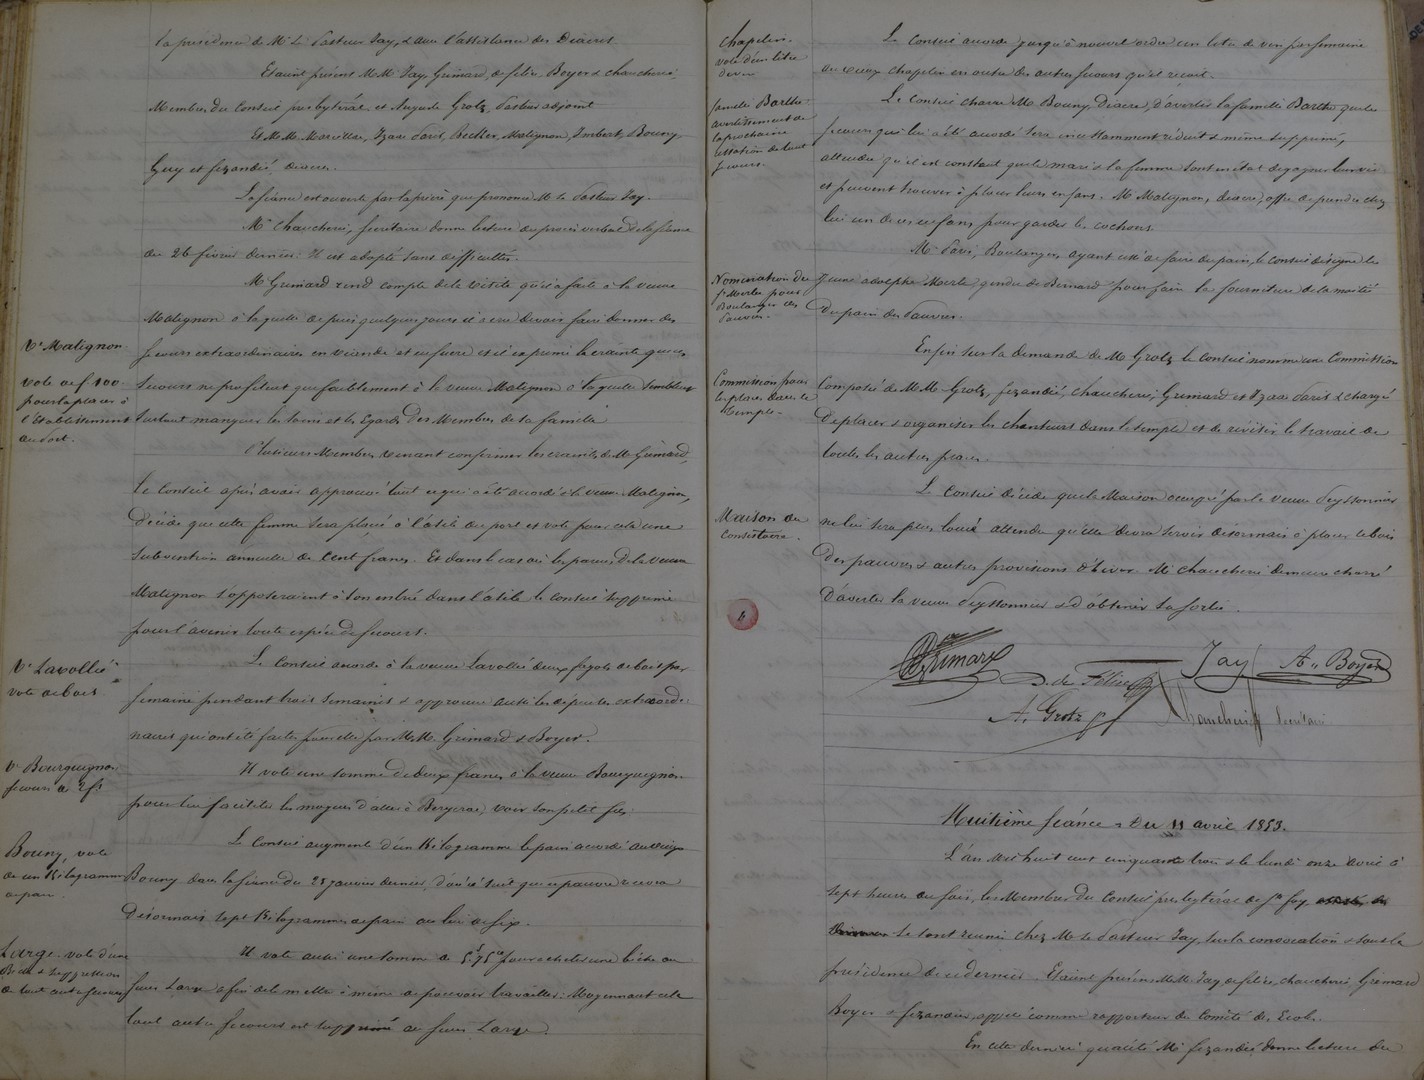 la présidence de Mr le Pasteur Jay, & avec l'assistance des Diacres.
Etaient présens MM. Jay, Grimard, de félice, Boyer & chaucherie,
Membres du Conseil presbytéral et Auguste Grotz, Pasteur adjoint
Et MM. Marcillère, Izaac Paris, Becker, Matignon, Imbert, Bouny,
Guy et fizandié, diacres.
La séance est ouverte par la prière que prononce Mr le Pasteur Jay.
Mr Chaucherie, secrétaire donne lecture du procès verbal de la séance
du 26 février dernier. Il est adopté sans difficultés.
Mr Grimard rend compte de la visite qu'il a faite à la veuve
Ve Matignon
Matignon à laquelle depuis quelques jours il a cru devoir faire donner des
secours extraordinaires en viande et en sucre et il exprime la crainte que ces
vote de f 100.
pour la placer à
l'établissement
du Port.
secours ne profitent que faiblement à la veuve Matignon à laquelle semblent
surtout manquer les soins et les égards des Membres de sa famille
Plusieurs Membres venant confirmer les craintes de Mr Grimard,
le Conseil après avoir approuvé tout ce qui a été accordé à la veuve Matignon,
Décide que cette femme sera placée à l'asile du port et vote pour cela une
subvention annuelle de Cent francs. Et dans le cas où les parens de la veuve
Matignon s'opposeraient à son entrée dans l'asile le conseil supprime
pour l'avenir toute espèce de secours.
Ve Lavollée
vote de bois
Le Conseil accorde à la veuve Lavollée deux fagots de bois par
semaine pendant trois semaines & approuve aussi les dépenses extraordi-
naires qui ont été faites pour elle par MM. Grimard & Boyer.
Ve Bourguignon
secours de 2 fs
Il vote une somme de deux francs à la veuve Bourguignon
pour lui faciliter les moyens d'aller à Bergerac, voir son petit fils.
Bouny, vote
de un Kilogramme
de pain.
Le Conseil augmente d'un Kilogramme le pain accordé au vieux
Bouny dans la séance du 28 janvier dernier, d'où il suit que ce pauvre recevra
Désormais sept Kilogrammes de pain au lieu de six.
Large. vote d'une
Bêche & suppression
de tout autre secours
Il vote aussi une somme de 5f 75c pour acheter une bêche au
sieur Large afin de le mettre à même de pouvoir travailler. Moyennant cela
tout autre secours est supprimé au sieur Large
Chapelin.
vote d'un litre
de vin
Le Conseil accorde jusqu'à nouvel ordre un litre de vin par semaine
au vieux chapelin en outre des autres secours qu'il reçoit.
famille Barthe
avertissement de
la prochaine
cessation de tout
secours.
Le Conseil charge Mr Bouny, Diacre, d'avertir la famille Barthe que le
secours qui lui a été accordé sera incessamment réduit & même supprimé,
attendu qu'il est constant que le mari & la femme sont en état de gagner leur vie
et peuvent trouver à placer leurs enfans. Mr Matignon, diacre, offre de prendre chez
lui un de ces enfans pour garder les cochons.
Nomination du
Sr Merle pour
Boulanger des
Pauvres.
Mr Paris, Boulanger, ayant cessé de faire du pain, le conseil désigne le
jeune adolphe Merle gendre de Bernard pour faire la fourniture de la moitié
Du pain des Pauvres.
Commission pour
les places dans le
Temple.
Enfin sur la demande de Mr Grotz le conseil nomme une Commission
Composée de MM. Grotz, fizandié, chaucherie, Grimard et Izaac Paris & chargé
De placer & organiser les chanteurs dans le temple et de réviser le travail de
toutes les autres places.
Maison du
Consistoire.
Le Conseil décide que la Maison occupée par la veuve Peyssonnier
ne lui sera plus louée attendu qu'elle devra servir désormais à placer le bois
Des pauvres & autres provisions d'hiver. Mr Chaucherie demeure chargé
D'avertir la veuve Peyssonnier & d'obtenir sa sortie.
Grimard
Jay
A. Boyer
D. de Félice
A. Grotz
Chaucherie Secrétaire
Huitième séance - du 11 avril 1853.
L'an mil huit cent cinquante trois & le lundi onze avril à
sept heures du soir, les Membres du Conseil presbytéral de Ste foy
se sont réunis chez Mr le Pasteur Jay, sur la convocation & sous la
présidence de ce dernier. Etaient présens MM. Jay, de félice, chaucherie, Grimard
Boyer & fizandié, appelé comme rapporteur du Comité des Ecoles.
En cette dernière qualité Mr fizandié donne lecture du